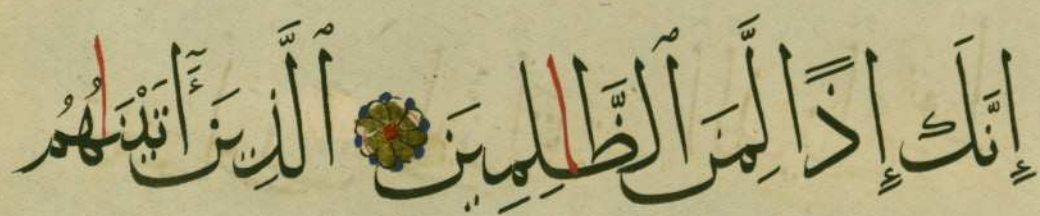 إِنَّكَ إِذًا لَّمِنَ ٱلظَّٰلِمِينَ ٱلَّذِينَ ءَاتَيْنَٰهُمُ